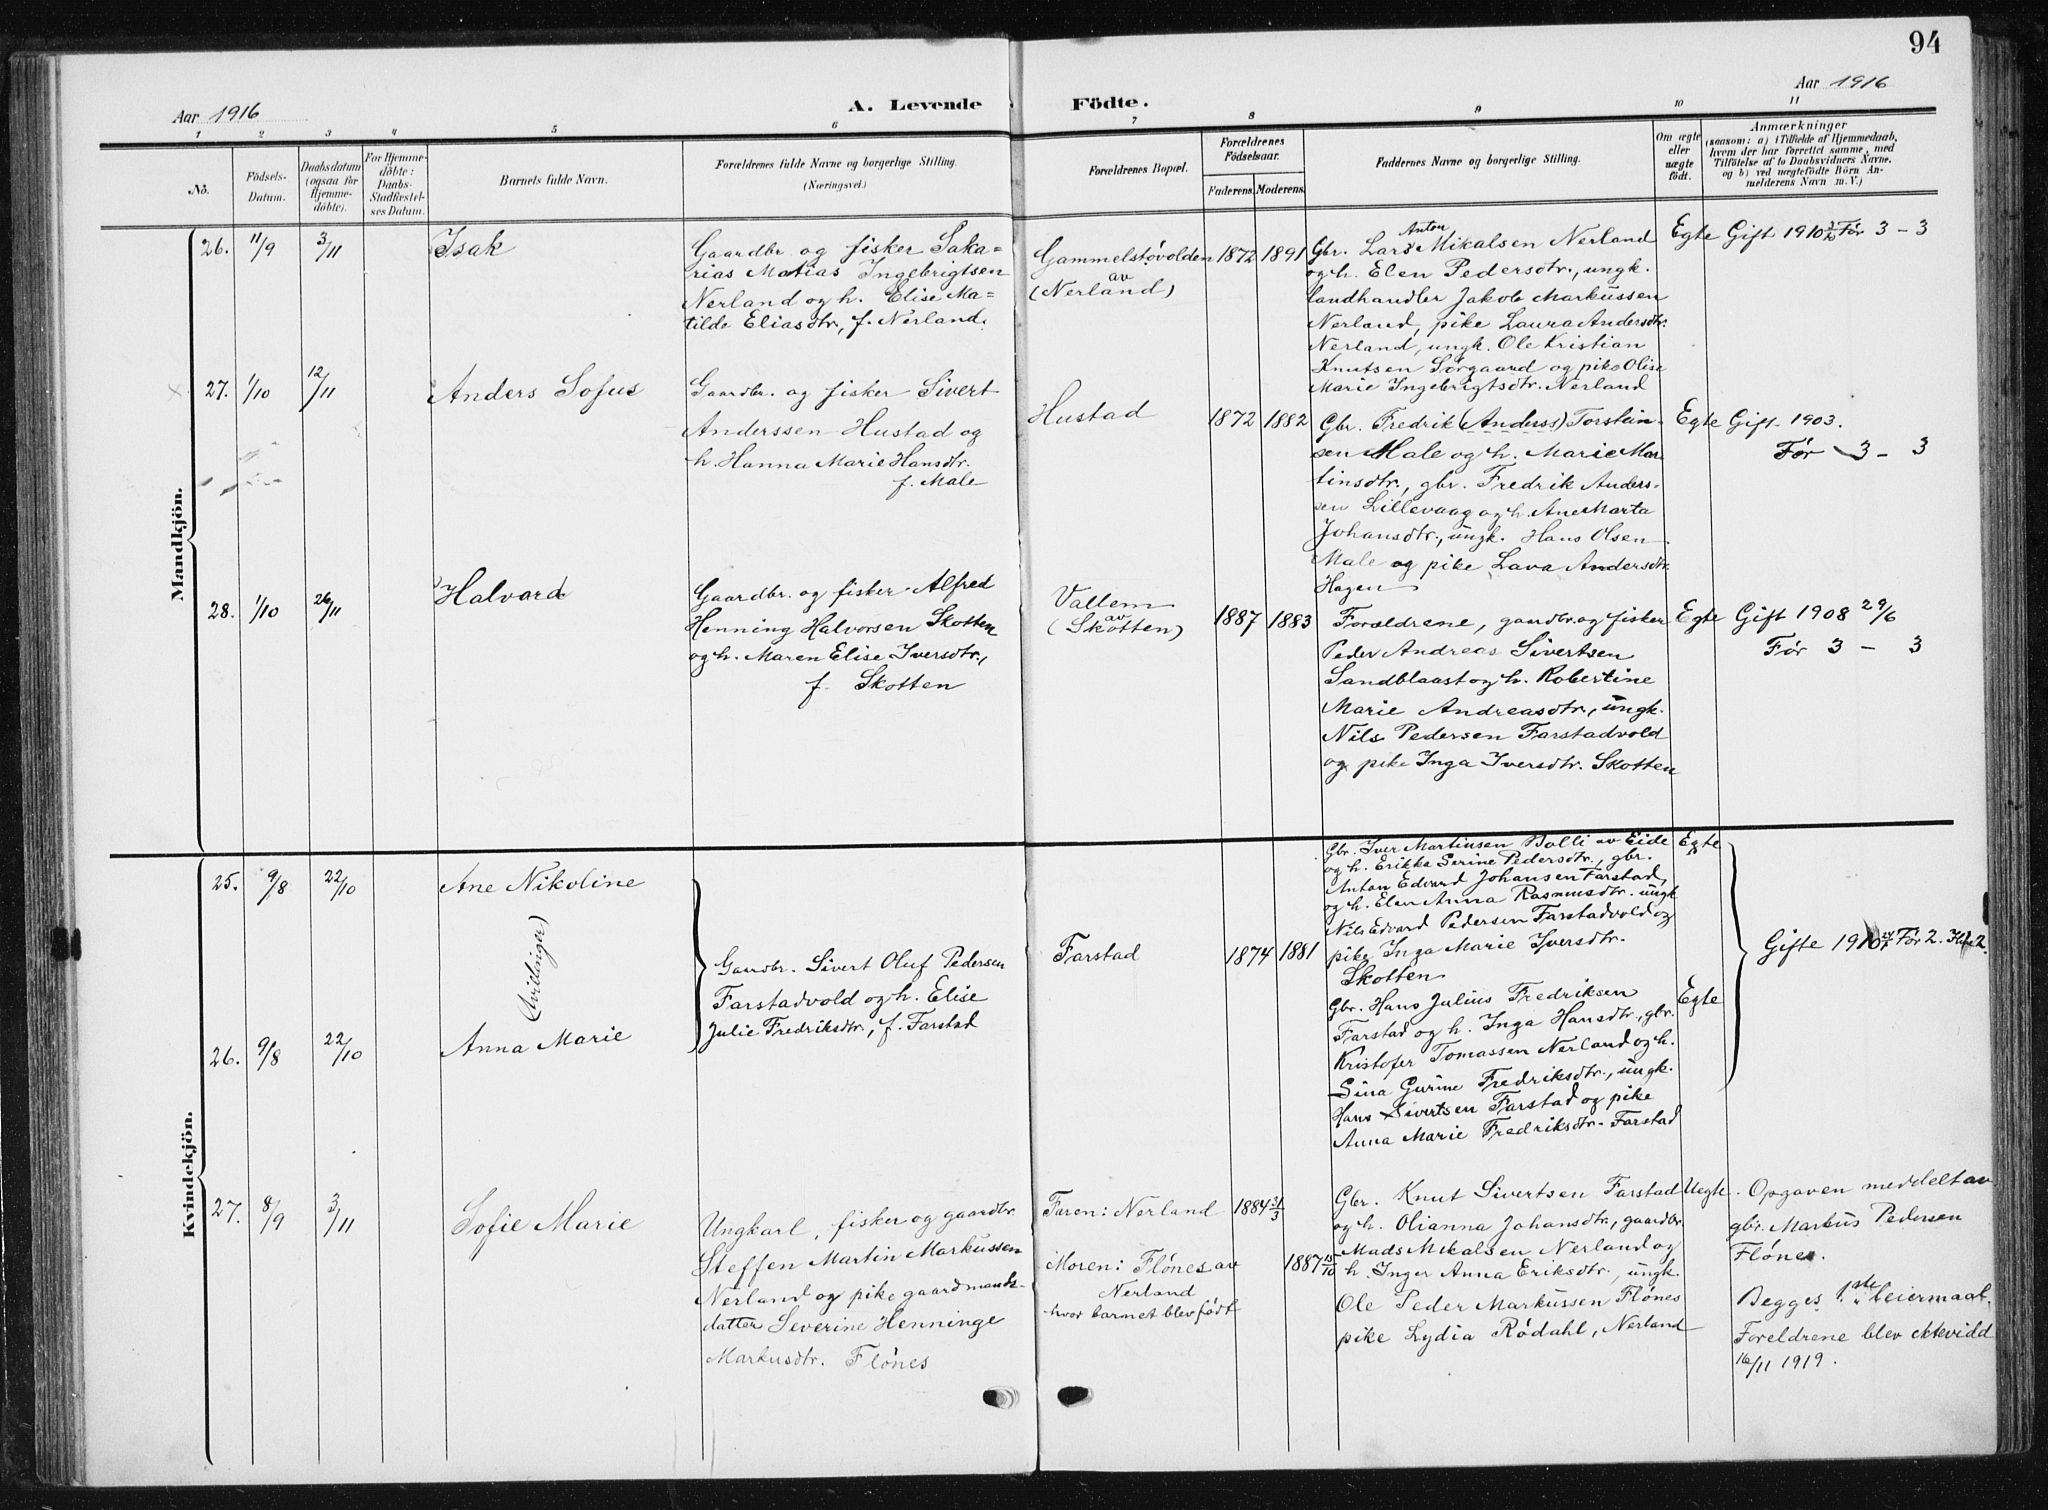 94
Aar 1916
A. Levende Födte.
Aar 1916
1 2 3 4 5 6 7 8 9 10 11
No.
Födsels-
Datum.
Daabsdatum
(ogsaa for
Hjemme-
döbte).
For Hjemme-
döbte:
Daabs-
Stadfæstel-
ses Datum.
Barnets fulde Navn.
Forældrenes fulde Navne og borgerlige Stilling.
(Næringsvei.)
Forældrenes Bopæl.
Forældrenes
Födselsaar.
Faderens. Moderens.
Faddernes Navne og borgerlige Stilling.
Om ægte
eller
uægte
födt.
Anmærkninger
(saasom: a) i Tilfælde af Hjemmedaab,
hvem der har forrettet samme, med
Tilföielse af to Daabsvidners Navne,
og b) ved uægtefödte Börn An-
melderens Navn m. V.)
Mandkjön.
26. 11/9 3/11 Isak
Gaardbr. og fisker Saka=
rias Matias Ingebrigtsen
Nerland og h. Elise Ma=
tilde Eliasdtr, f. Nerland.
Gammelstøvolden
av
(Nerland)
1872 1891
Anton
Gbr. Lars Mikalsen Nerland
og h. Elen Pedersdtr., ungk.
landhandler Jakob Markussen
Nerland, pike Laura Andersdtr.
Nerland, ungk. Ole Kristian
Knutsen Sørgaard og pike Olise
Marie Ingebrigtsdtr. Nerland
Egte Gift 1910 3/10 Før 3 - 3
27. 1/10 12/11 Anders Sofus
Gaardbr. og fisker Sivert
Anderssen Hustad og
h. Hanna Marie Hansdtr.
f. Male
Hustad
1872 1882
Gbr. Fredrik (Anderss) Torstein-
sen Male og h. Marie Mar-
tinsdtr., gbr. Fredrik Anders-
sen Lillevaag og h. Ane Marta
Johansdtr., ungk. Hans Olsen
Male og pike Lava Andersdtr.
Hagen
Egte Gift 1903.
Før 3 - 3
28. 1/10 26/11 Halvard
Gaardbr. og fisker Alfred
Henning Halvorsen Skotten
og h. Maren Elise Iversdtr.,
f. Skotten
Vallem
av
(Skotten)
1887 1883
Forældrene, gaardbr. og fisker
Peder Andreas Sivertsen
Sandblaast og h. Robertine
Marie Andreasdtr., ungk.
Nils Pedersen Farstadvold
og pike Inga Iversdtr. Skotten
Egte Gift 1908 29/6
Før 3 - 3
Kvindekjön.
25. 9/8 22/10 Ane Nikoline
(tvillinger)
Gaardbr. Sivert Oluf Pedersen
Farstadvold og h. Elise
Julie Fredriksdtr., f. Farstad
Farstad
1874 1881
Gbr. Iver Martinsen Bolli av Eide
og h. Erikka Serine Pedersdtr., gbr.
Anton Edvard Johansen Farstad,
og h. Elen Anna Rasmusdtr. ungk
Nils Edvard Pedersen Farstadvold og
pike Inga Marie Iversdtr.
Skotten
Egte
Gifte 1910 Før 2.
26. 9/8 22/10 Anna Marie
Gbr. Hans Julius Fredriksen
Farstad og h. Inga Hansdtr, gbr.
Kristofer Tomassen Nerland og h.
Sina Gurine Fredriksdtr., ungk.
Hans Sivertsen Farstad og pike
Anna Marie Fredriksdtr. Farstad
Egte
27. 8/9 3/11 Sofie Marie
Ungkarl, fisker og gaardbr.
Steffen Martin Markussen
Nerland og pike gaardmands-
datter Severine Henninge
Markusdtr. Flónes
Faren: Nerland
Moren: Flónes av
Nerland
hvor barnet blev født
1884 31/3
1887 15/10
Gbr. Knut Sivertsen Farstad
og h. Olianna Johansdtr., gaardbr.
Mads Mikalsen Nerland og
h. Inger Anna Eriksdtr., ungk.
Ole Peder Markussen Flónes
pike Lydia Rødahl, Nerland
Uegte. Opgaven meddelt av
gbr. Markus Pedersen
Flónes.
Begges 1ste leiermaal.
Foreldrene blev ektevidd
16/11 1919.